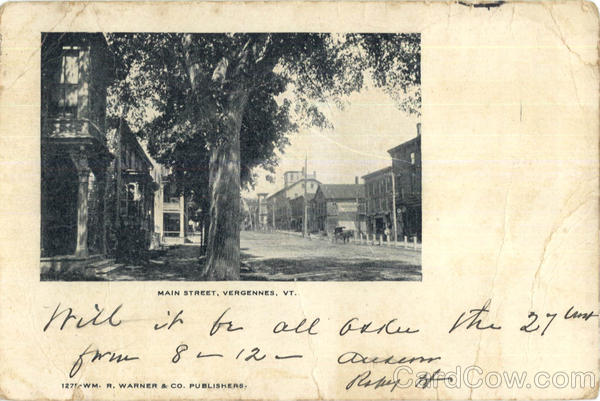 MAIN STREET, VERGENNES, VT.
Will it be all the 27 inst
from 8-12-
127 -WM. R. WARNER & CO. PUBLISHERS.
CardCow.com